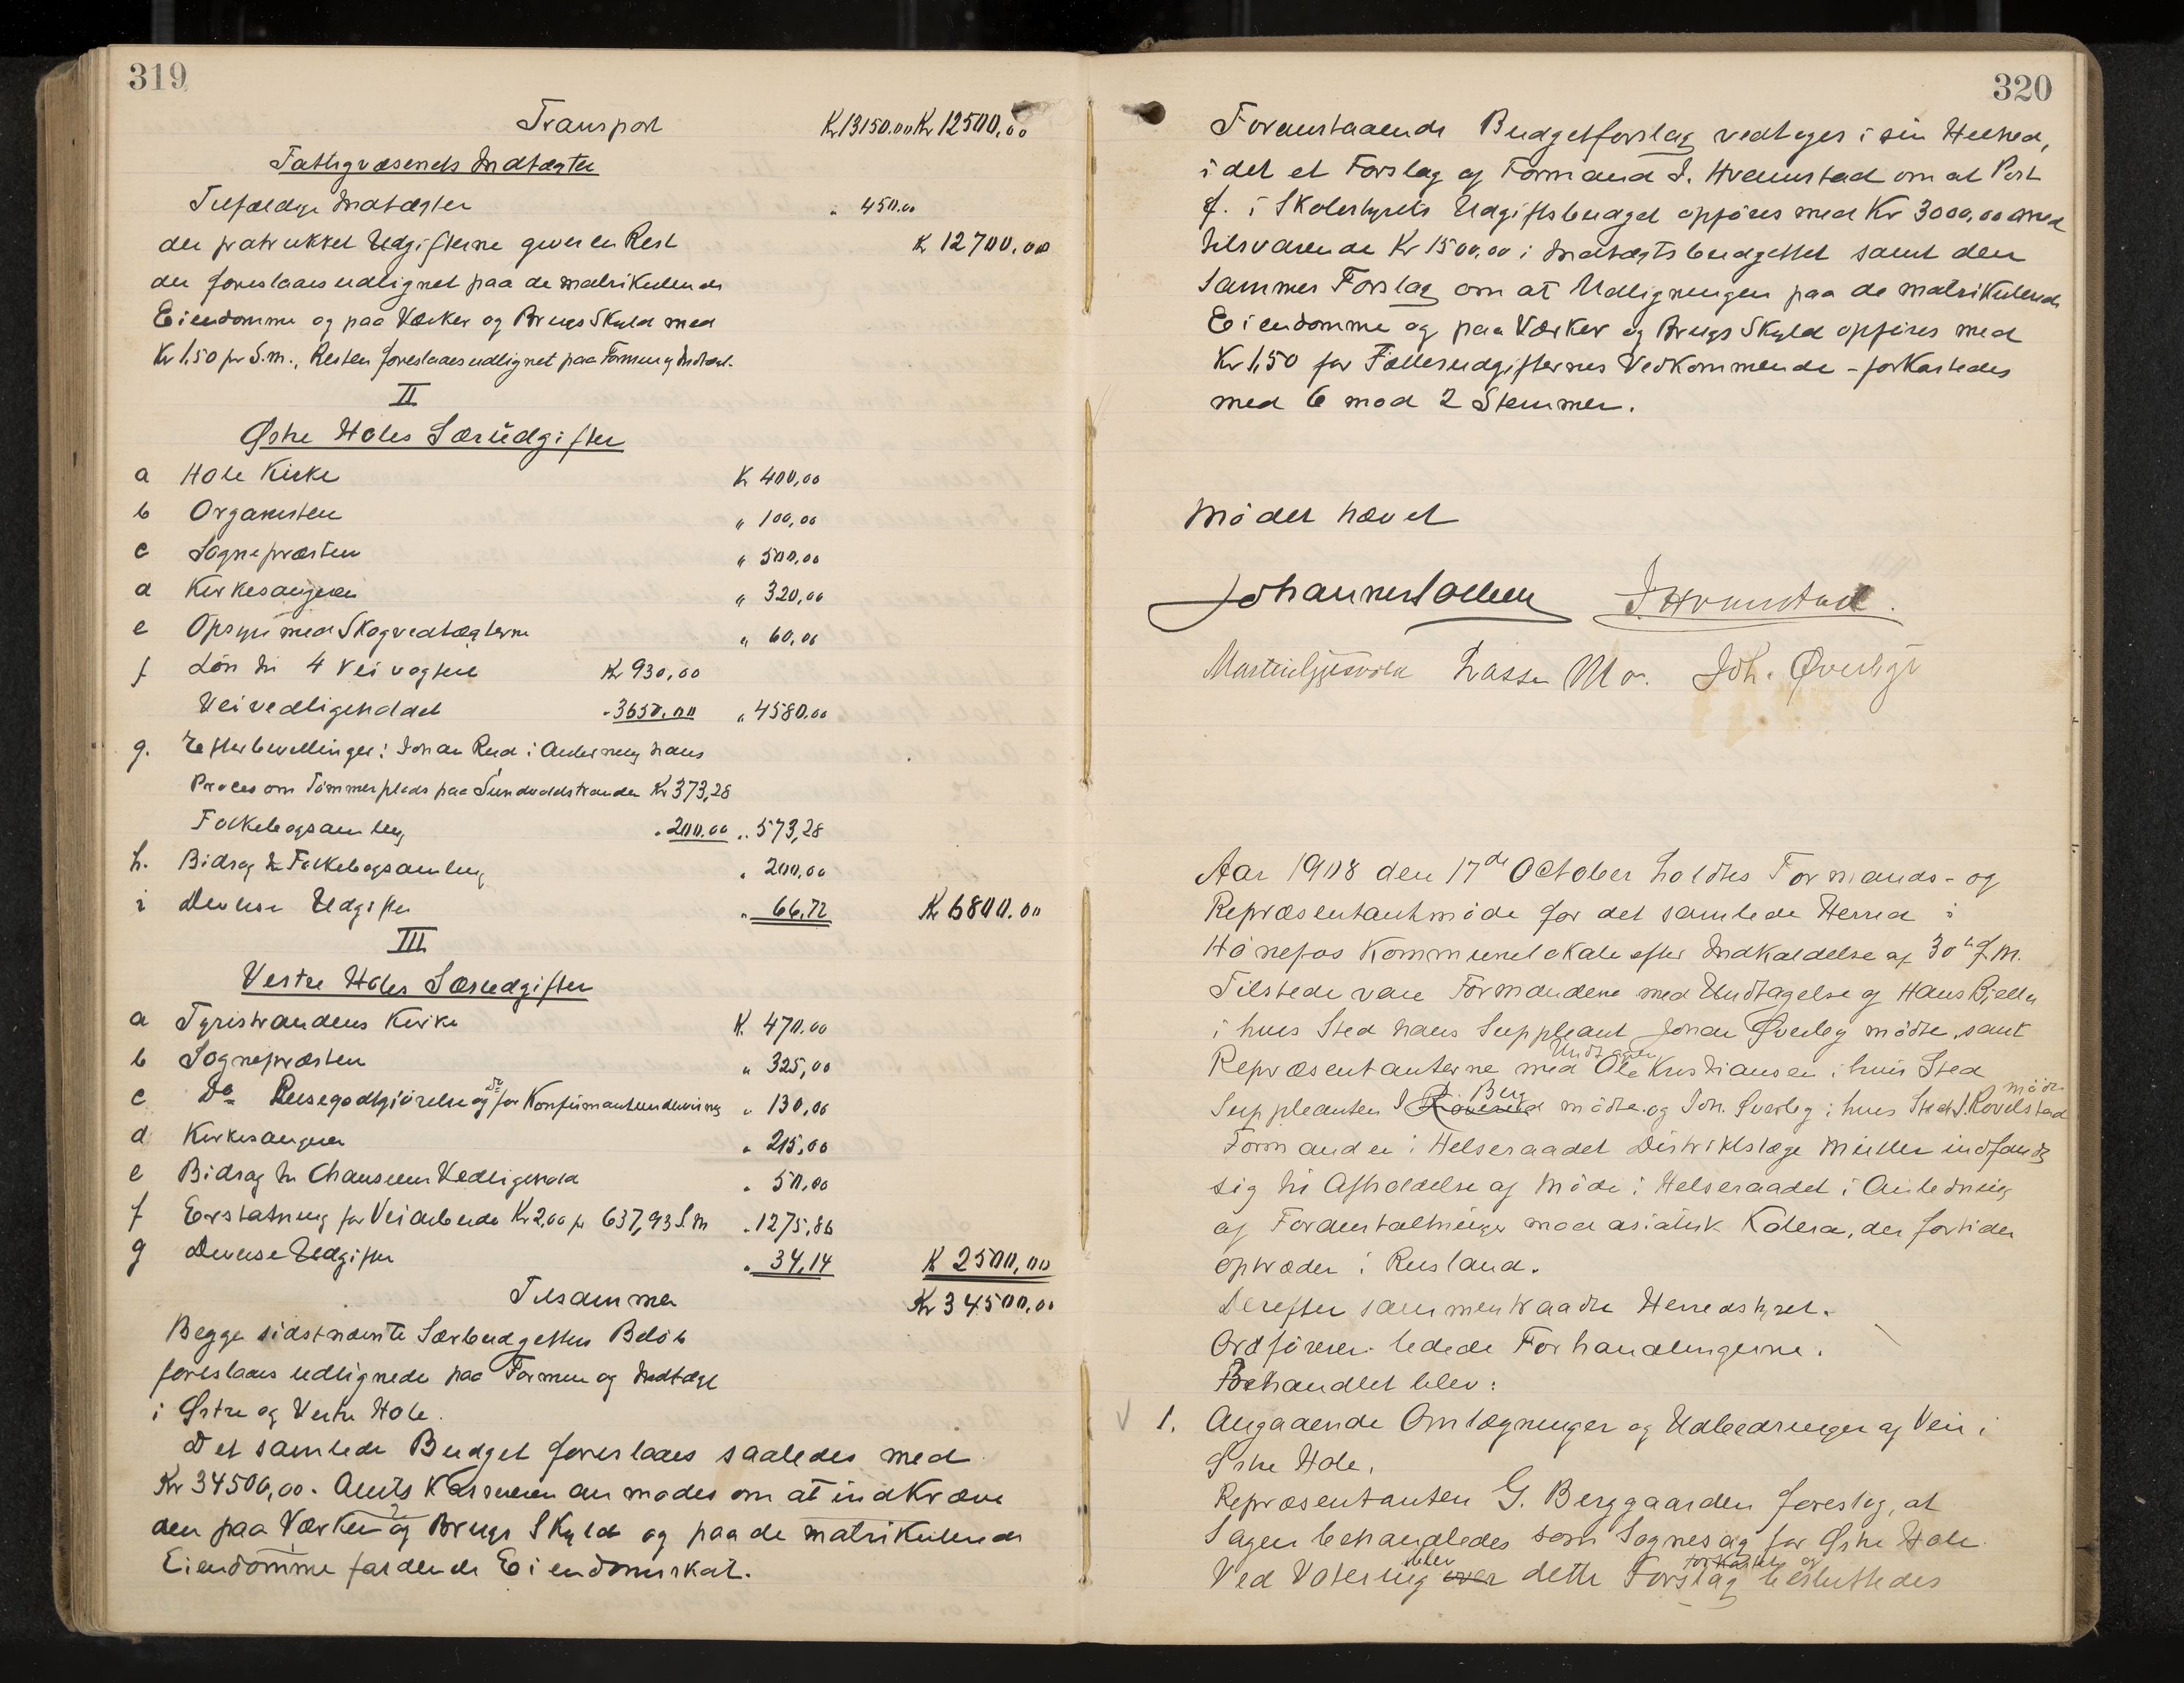 319
Transport Kr 13150.00 Kr 12500,00
Fattigvæsenets Indtægter
Tilfældige Indtægter " 450.00
der fratrukket Udgifterne giver en Rest K 12700,00
der foreslaaes udlignet paa de matrikulerede
Eiendomme og paa Værker og Brugs Skyld med
Kr 1.50 pr S.m., Resten foreslaaes udlignet paa Formue og Indtægt.
II
Østre Holes Særudgifter
a Hole Kirke K 400,00
b Organisten " 100,00
c Sognepræsten " 500,00
d Kirkesangeren " 320,00
e Opsyn med Skogvedtægterne " 60,00
f Løn til 4 Veivogtere Kr 930,00
Veivedligeholdet - 3650.00 " 4580.00
g. Efterbevillinger: Johan Rud i Anledning hans
Proces om Tømmerplads paa Sundvoldstranden Kr 373,28
Folkebogsamling " 200.00 " 573,28
h. Bidrag til Folkebogsamling " 200,00
i Diverse Udgifter " 66,72 Kr 6800.00
III
Vestre Holes Særudgifter
a Tyristrandens Kirke K. 470.00
b Sognepræsten " 325,00
c Do Reisegodtgjørelse og do for Konfirmantundervisning " 130,00
d Kirkesangeren " 215,00
e Bidrag til Chausseens Vedligehold " 50,00
f Erstatning for Veiarbeide Kr 2,00 pr 637,93 S.m " 1275,86
g Diverse Udgifter " 34,14 K 2500,00
Tilsammen Kr 34500,00
Begge sidstnævnte Særbudgetters Beløb
foreslaaes udlignede paa Formue og Indtægt
i Østre og Vestre Hole.
Det samlede Budget foreslaaes saaledes med
Kr 34500,00. Amts Kassereren anmodes om at indkræve
den paa Værker og Brugs Skyld og paa de matrikulerede
Eiendomme faldende Eiendomsskat.
320
Foranstaaende Budgetforslag vedtoges i sin Helhed,
idet et Forslag af Formand J. Hvamstad om at Post
f. i Skolestyrets Udgiftsbudget opføres med Kr 3000,00 med
tilsvarende Kr 1500,00 i Indtægtsbudgettet samt den
sammes Forslag om at Udligningen paa de matrikulerede
Eiendomme og paa Værker og Brugs Skyld opføres med
Kr 1,50 for Fællesudgifternes Vedkommende - forkastedes
med 6 mod 2 Stemmer.
Mødet hævet
Johannes Sollien J Hvamstad.
Martin Gjesvold Lasse Mo. Joh. Øverby
Aar 1908 den 17de October holdtes Formands- og
Repræsentantmøde for det samlede Herred i
Hønefos Kommunelokale efter Indkaldelse af 30te f.M.
Tilstede vare Formændene med Undtagelse af Hans Bjella
i hvis Sted hans Suppleant Johan Øverby mødte, samt
Repræsentanterne med Undtagen Ole Kristiansen i hvis Sted
Suppleanten J Berg mødte og Joh. Øverby i hvis Sted J. Rovelstad mødte
Formanden i Helseraadet Distriktslæge Müller indfandt
sig til Afholdelse af Møde i Helseraadet i Anledning
af Foranstaltninger mod asiatisk Kolera, der fortiden
optræder i Rusland.
Derefter sammentraadte Herredstyret.
Ordføreren ledede Forhandlingerne.
Behandlet blev:
1. Angaaende Omlægninger og Udbedringer af Veie i
Østre Hole.
Repræsentanten G. Berggaarden foreslog, at
Sagen behandledes som Sognesag for Østre Hole
Ved Votering over blev dette Forslag forkastet og besluttedes